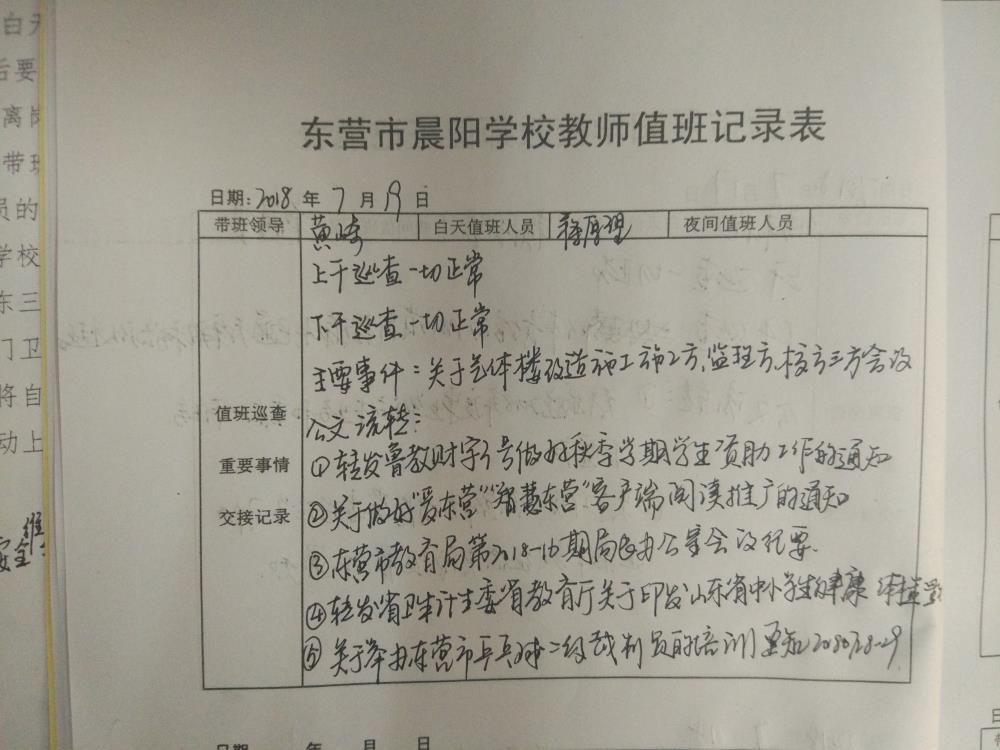 白天
后要
离岗
带班
员的
学校
东三
门卫
将自
动上
安全
东营市晨阳学校教师值班记录表
日期: 2018 年 7 月 19 日
带班领导 黄崎 白天值班人员 夜间值班人员
上午巡查一切正常
下午巡查一切正常
主要事件:关于总体楼改造施工施工方、监理方、校方三方会议
值班巡查
公文流转:
重要事情
①转发鲁教财字5号做好秋季学期学生资助工作的通知
②关于做好"爱东营""智慧东营"客户端阅读推广的通知
交接记录
③东营市教育局第2018-16期局长办公室会议纪要
④转发省卫生计生委省教育厅关于印发山东省中小学生健康体检
⑤关于举办东营市乒乓球二级裁判员的培训
日期 年 月 日